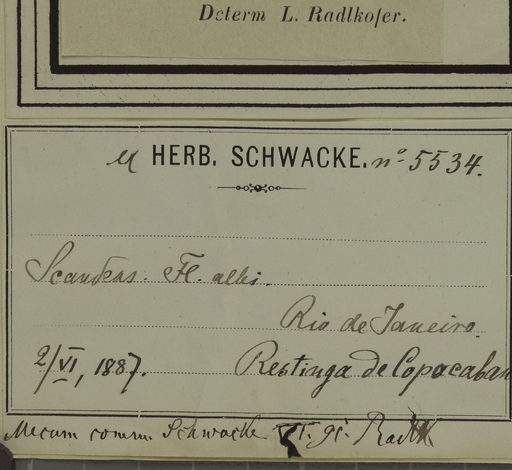 Determ L. Radlkofer.
HERB. SCHWACKE. no 5534.
Scandens. Fl. albi.
Rio de Janeiro.
2/VI, 1887. Restinga de Copacaban
Mecum comm. Schwacke